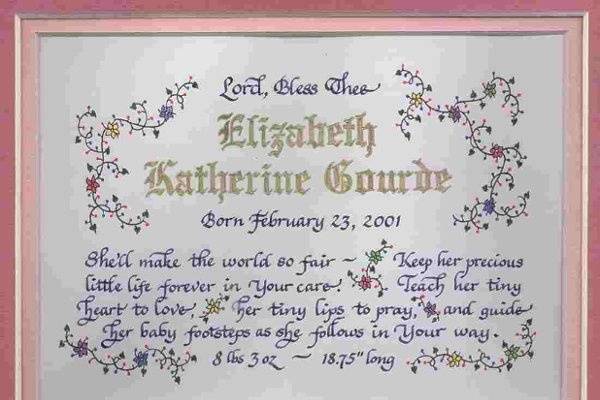 Lord, Bless Thee
Elizabeth
Katherine Gourde
Born February 23, 2001
She'll make the world so fair ~ Keep her precious
little life forever in Your care. Teach her tiny
heart to love, her tiny lips to pray, and guide
her baby footsteps as she follows in Your way.
8 lbs 3 oz ~ 18.75" long